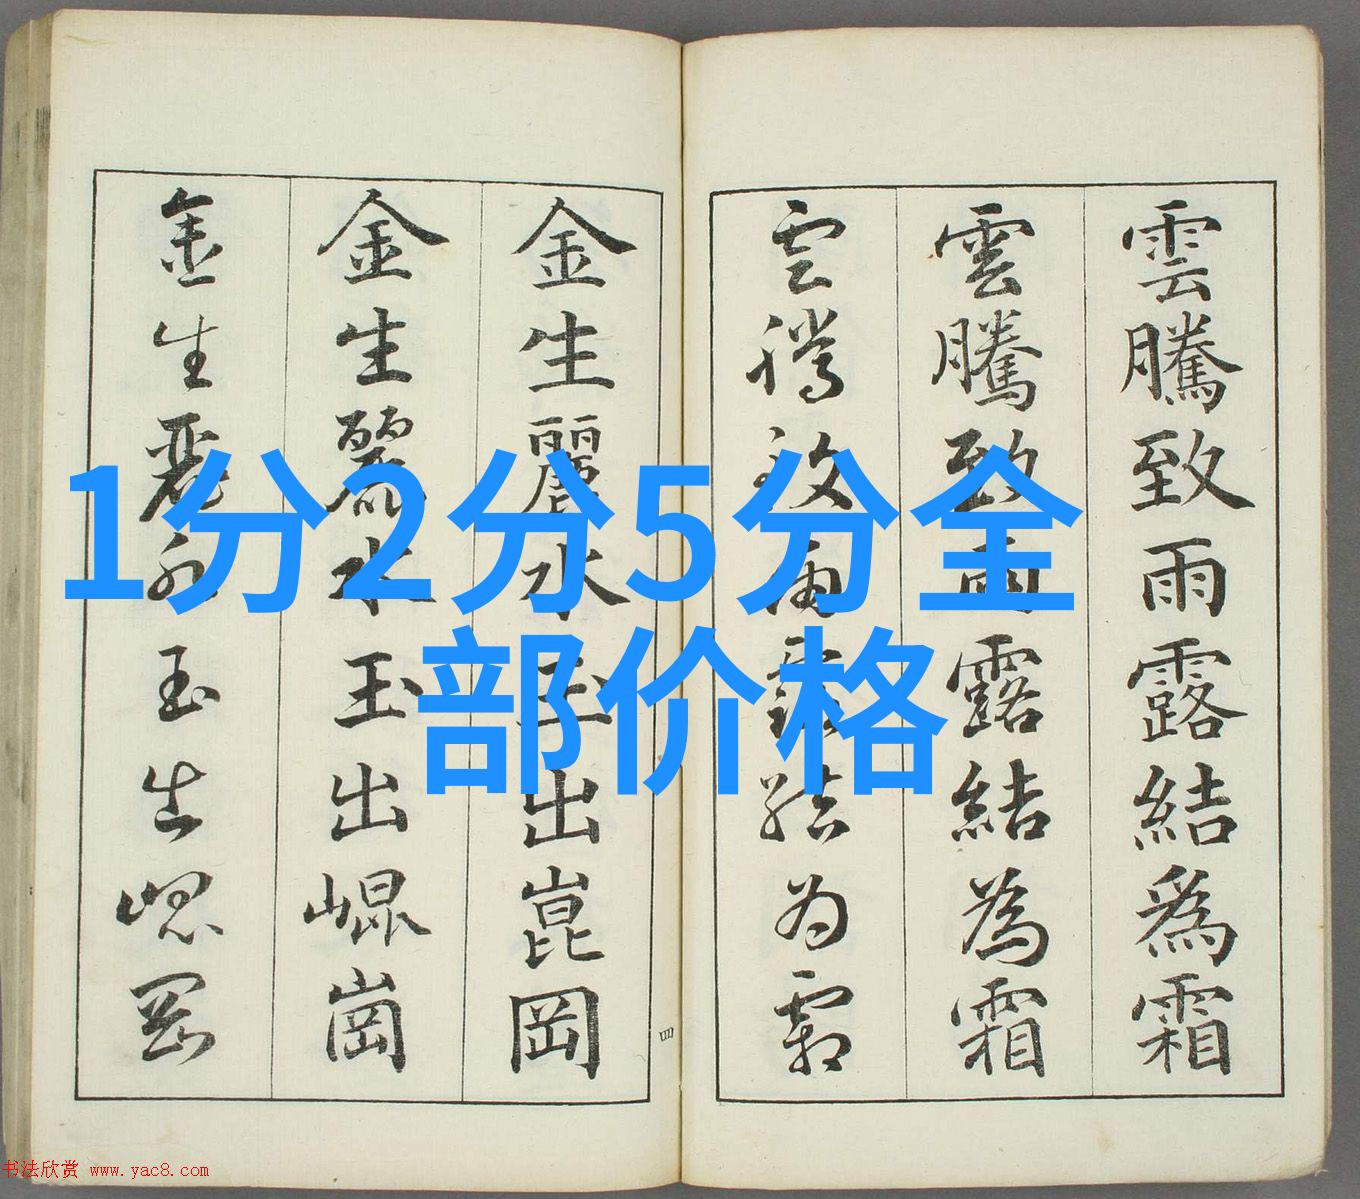 1分2分5分全
部价格
雲騰致雨露結爲霜
雲騰致雨露結為霜
雲騰致雨露结为霜
金生麗水玉出崑岡
金生麗水玉出崐崗
金生麗水玉出崐岡
四
书法欣赏 www.yac8.com